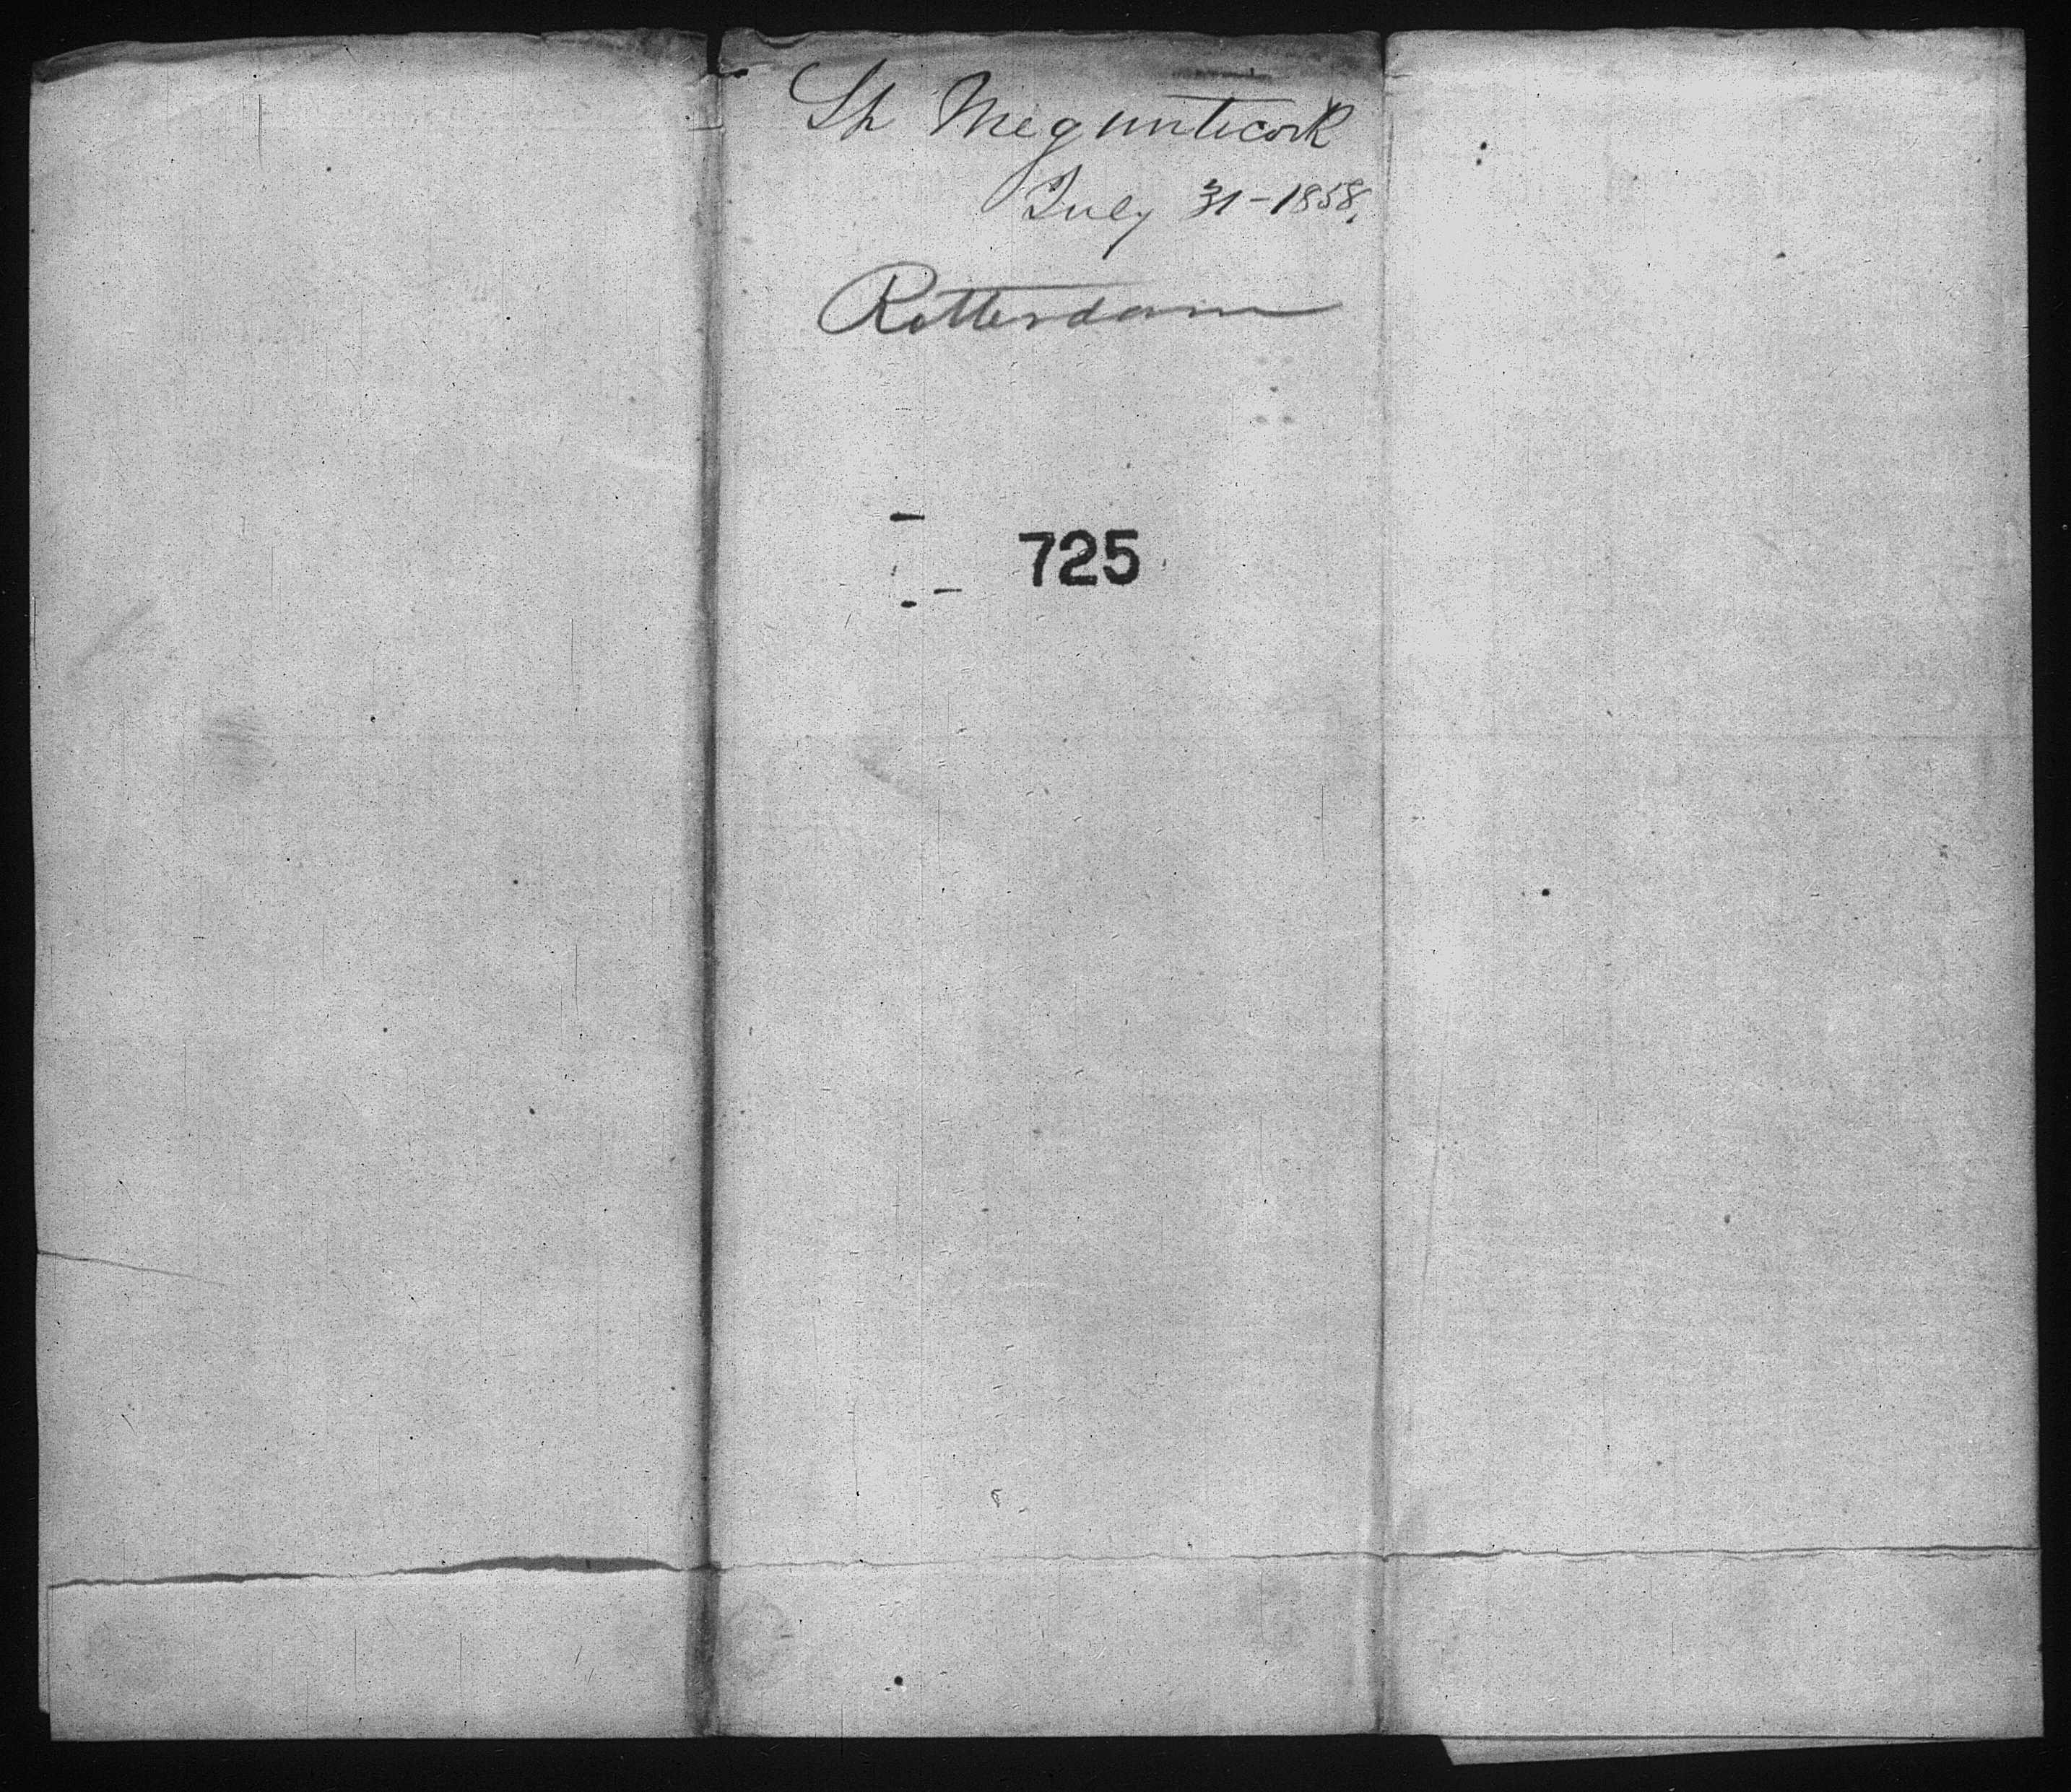 Sh Megunticook
July 31-1858.
Rotterdam
725